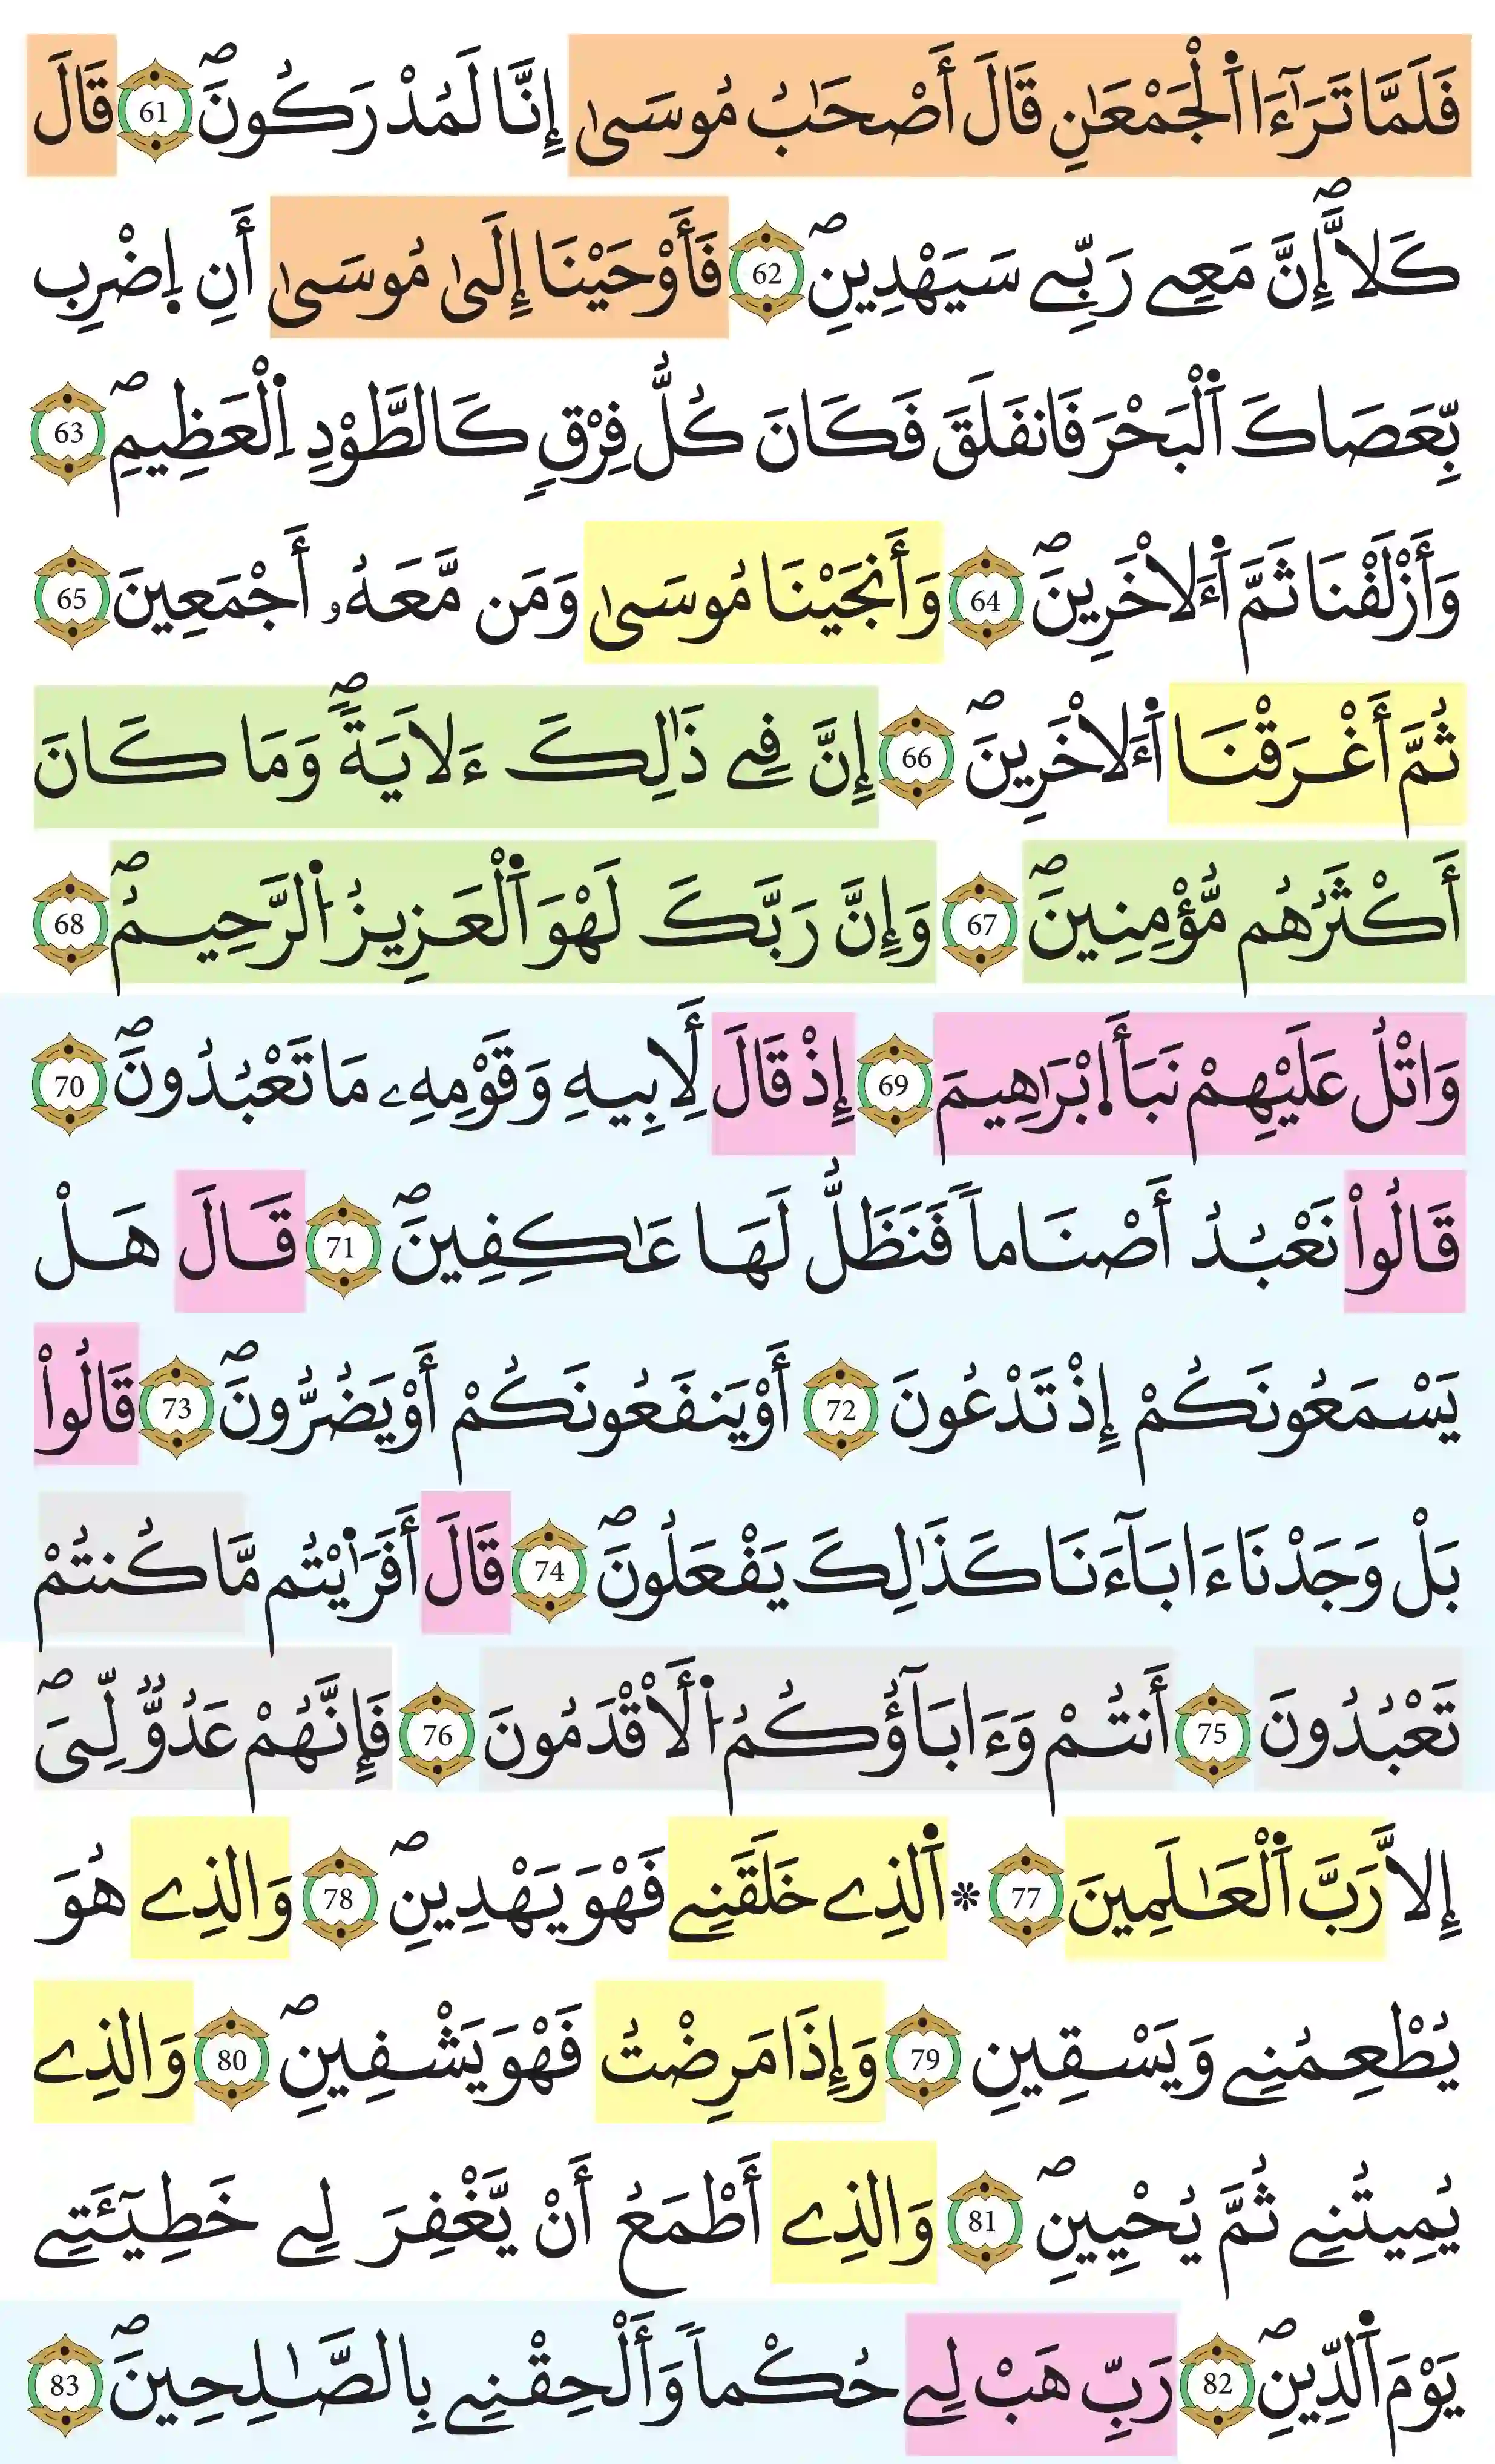 فَلَمَّا تَرَٰٓءَا اَ۬لْجَمْعَٰنِ قَالَ أَصْحَٰبُ مُوسَىٰٓ إِنَّا لَمُدْرَكُونَۖ 61 قَالَ
كَلَّاۖ إِنَّ مَعِے رَبِّے سَيَهْدِينِۖ 62 فَأَوْحَيْنَا إِلَىٰ مُوسَىٰ أَنِ اِ۪ضْرِب
بِّعَصَاكَ اَ۬لْبَحْرَ فَانفَلَقَ فَكَانَ كُلُّ فِرْقٖ كَالطَّوْدِ اِ۬لْعَظِيمِۖ 63
وَأَزْلَفْنَا ثَمَّ اَ۬ءَلَاخَرِينَۖ 64 وَأَنجَيْنَا مُوسَىٰ وَمَن مَّعَهُۥ أَجْمَعِينَ 65
ثُمَّ أَغْرَقْنَا اَ۬ءَلَاخْرِينَۖ 66 إِنَّ فِے ذَٰلِكَ ءَلَايَةٗۖ وَمَا كَانَ
أَكْثَرُهُم مُّؤْمِنِينَۖ 67 وَإِنَّ رَبَّكَ لَهْوَ اَ۬لْعَزِيزُ اُ۬لرَّحِيمُۖ 68
وَاتْلُ عَلَيْهِمْ نَبَأَ اِ۪بْرَٰهِيمَ 69 إِذْ قَالَ لِأَبِيهِ وَقَوْمِهِۦ مَا تَعْبُدُونَۖ 70
قَالُواْ نَعْبُدُ أَصْنَاماٗ فَنَظَلُّ لَهَا عَٰكِفِينَۖ 71 قَالَ هَلْ
يَسْمَعُونَكُمْ إِذْ تَدْعُونَ 72 أَوْ يَنفَعُونَكُمْ أَوْ يَضُرُّونَۖ 73 قَالُواْ
بَلْ وَجَدْنَا ءَابَآءَنَا كَذَٰلِكَ يَفْعَلُونَۖ 74 قَالَ أَفَرَٰ۬يْتُم مَّا كُنتُمْ
تَعْبُدُونَ 75 أَنتُمْ وَءَابَآؤُكُمُ اُ۬لْأَقْدَمُونَ 76 فَإِنَّهُمْ عَدُوّٞ لِّيَۖ
إِلَّا رَبَّ اَ۬لْعَٰلَمِينَ 77 * اَ۬لذِے خَلَقَنِے فَهْوَ يَهْدِينِۖ 78 وَالذِے هُوَ
يُطْعِمُنِے وَيَسْقِينِ 79 وَإِذَا مَرِضْتُ فَهْوَ يَشْفِينِۖ 80 وَالذِے
يُمِيتُنِے ثُمَّ يُحْيِينِۖ 81 وَالذِے أَطْمَعُ أَنْ يَّغْفِرَ لِے خَطِيٓـَٔتِے
يَوْمَ اَ۬لدِّينِۖ 82 رَبِّ هَبْ لِے حُكْماٗ وَأَلْحِقْنِے بِالصَّٰلِحِينَۖ 83